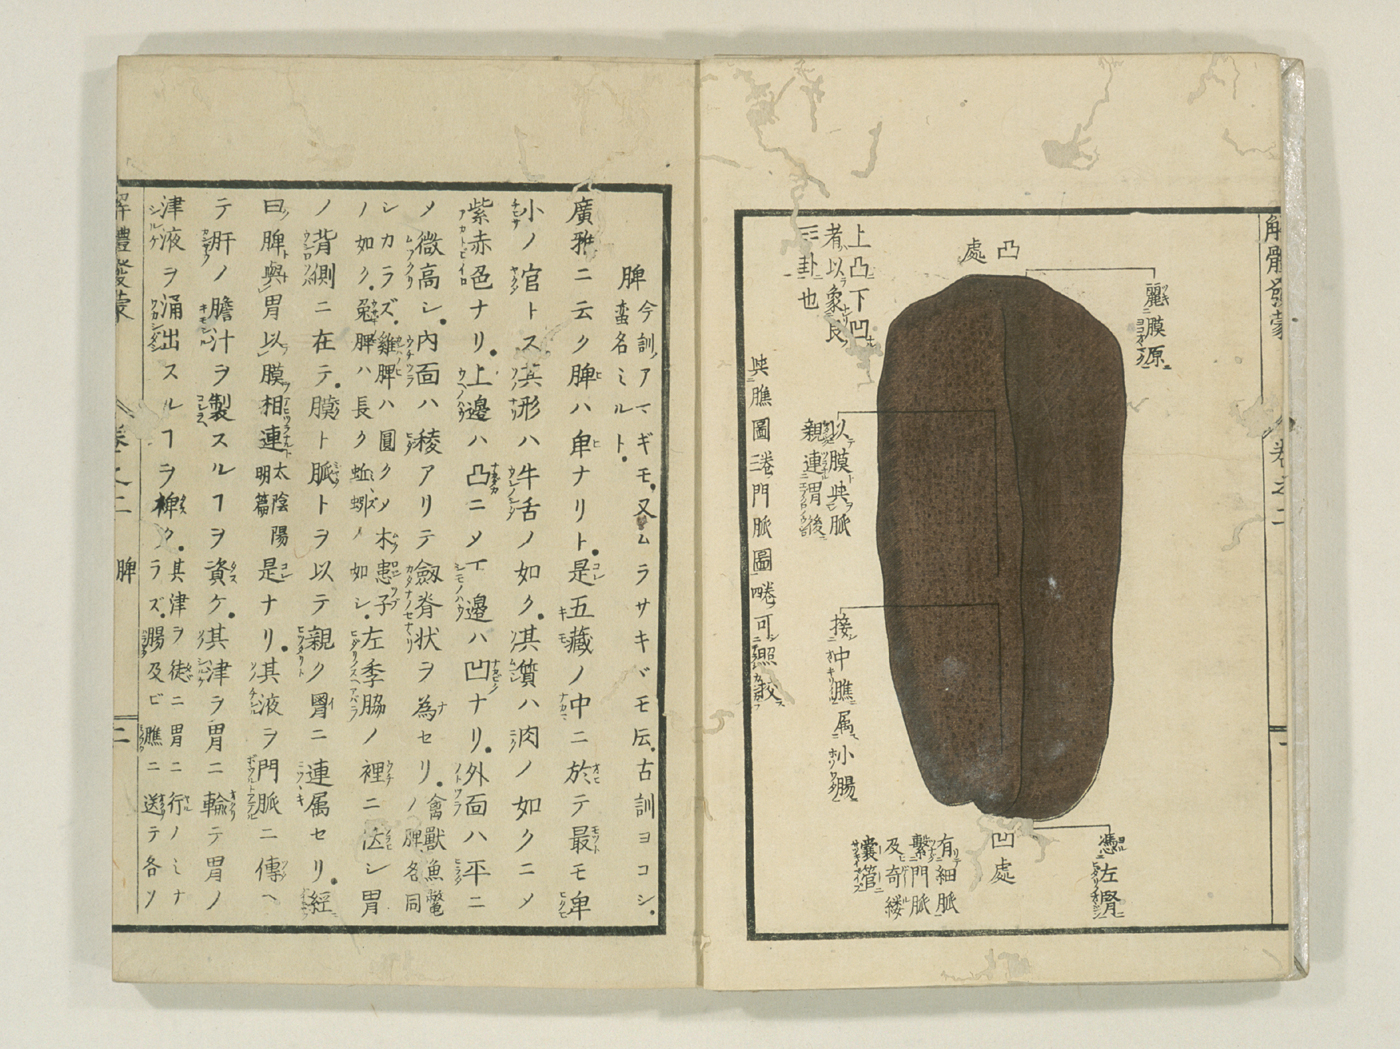 解體發蒙
卷之二
一
凸處
麗膜原
上凸下凹
者以象艮
☶卦也
以膜與脈
親連胃後
接中膲属小腸
與膲圖三卷門脈圖四卷可照挍
凹處
憑左腎
有細脈
繫門脈
及奇縷
嚢管
脾
今訓アマギモ又ムラサキギモ伝古訓ヨコシ
蛮名ミルト
廣雅ニ云ク脾ハ卑ナリト是五藏ノ中ニ於テ最モ卑
小ノ官トス其形ハ牛舌ノ如ク其質ハ肉ノ如クニメ
紫赤色ナリ上邊ハ凸ニメ下邊ハ凹ナリ外面ハ平ニ
メ微高シ内面ハ稜アリテ劔脊状ヲ為セリ禽獸魚鼈
ノ脾名同
シカラズ雞脾ハ圓クメ木患子
ノ如ク兔脾ハ長ク蚯蚓ノ如シ左季脇ノ裡ニ伏シ胃
ノ背側ニ在テ膜ト脈トヲ以テ親ク胃ニ連属セリ經
曰脾與胃以膜相連太陰陽
明篇是ナリ其液ヲ門脈ニ傳ヘ
テ肝ノ膽汁ヲ製スルヿヲ資ケ其津ヲ胃ニ輸テ胃ノ
津液ヲ涌出スルヿヲ裨ク其津ヲ徒ニ胃ニ行ノミナ
ラズ腸及ビ膲ニ送テ各ソ
解體發蒙
卷之二
脾
二